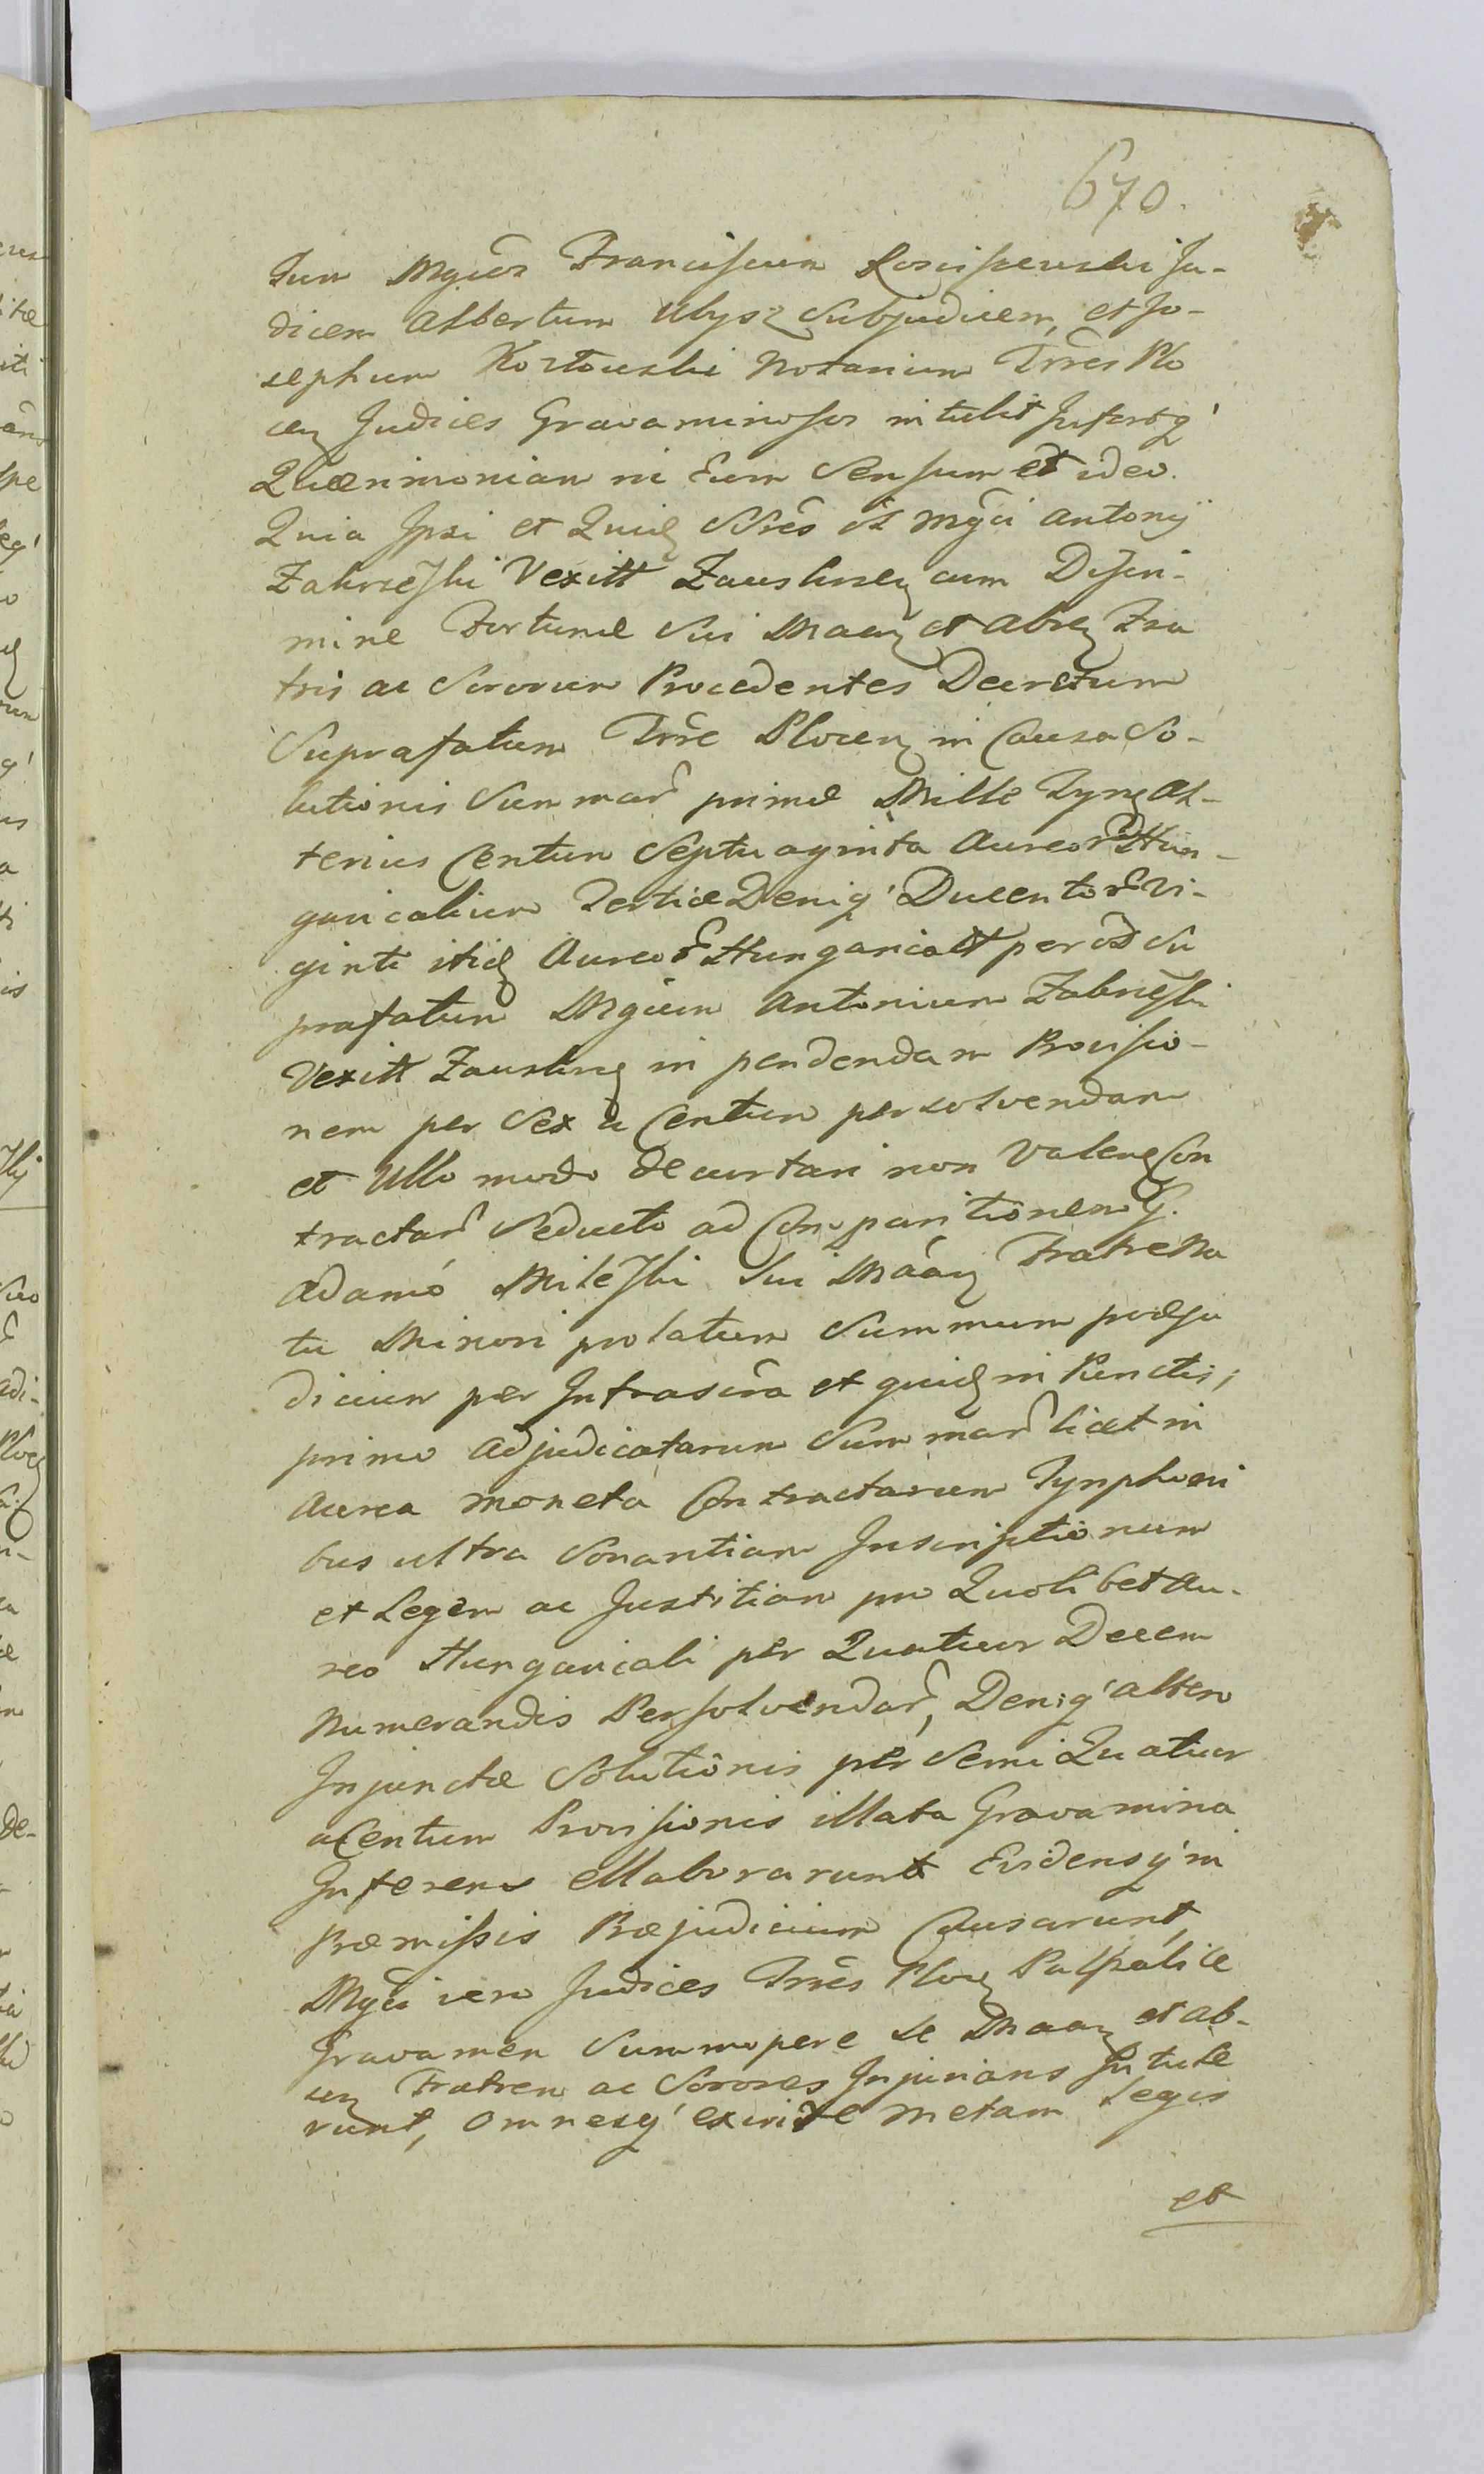 670.
Tum Mgcos Franciscum Kosciszewski Ju-
dicem Albertum Ulysz Subjudicem, et Jo-
sephum Koztowski Notarium Trres Plo
cen Judices Gravaminosos intulit Infertq'
Quærimoniam in Eum Sensum et ideo.
Quia Ipsi et Quid SSres Mgci Antonij
Zakrzeski Vexill Zauskrzen cum Discri-
mine Fortunæ Sui Maan et absen Fra
tris ac Sororum Procedentes Decretum
Suprafatum Trre Plocen in Causa So-
lutionis Summar primæ Mille Tynf Al-
terius Centum Septuaginta Aureor Hun-
garicalium Tertiæ Deniq' Ducentor Vi-
ginti itid Aureor Hungarical per Su
prafatum Mgcum Antonium Zakrzeski
Vexill Zauskrzen impendendam Provisio-
nem per Sex a Centum persolvendam
et Ullo modo decurtari non Valen Con
tractar Seducto ad Comparitionem G.
Adamo Mileski Sui Maan Fratre Na
tu Minori prolatum Summum præju
dicium per Infrascra et quid in Punctis,
primo adjudicatarum Summar licet in
Aurea moneta Contractarum Tynphoni
bus ultra Sonantiam Inscriptionum
et Legem ac Justitiam pro Quolibet Au-
reo Hungaricali per Quatuor Decem
Numerandis Persolvendar, Deniq' altero
Injunctæ Solutionis per Semi Quatuor
a Centum Provisionis illata Gravamina
Inferens ellaborarunt Evidensq' in
præmissis Præjudicium Causarunt,
Mgci vero Judices Trres Plocen Palpabile
Gravamen Summopere se Maan et ab-
sen Fratrem ac Sorores Injurians Intule
runt, Omnesq' exivere metam Legis
et